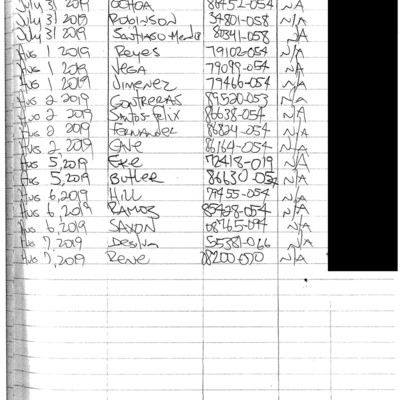 July 31 2019 OCHOA 86452-054 N/A
July 31 2019 ROBINSON 34801-058 N/A
July 31 2019 SANTIAGO 80341-058 N/A
Aug 1 2019 Reyes 79102-054 N/A
Aug 1 2019 VEGA 79099-054 N/A
Aug 1 2019 Jimenez 79466-054 N/A
Aug 2 2019 CONTRERAS 89520-053 N/A
Aug 2 2019 SANTOS-Felix 86638-054 N/A
Aug 2 2019 FERNANDEZ 86824-054 N/A
Aug 2, 2019 86164-054 N/A
Aug 5, 2019 72418-019 N/A
Aug 5, 2019 BUTLER 86630-054 N/A
Aug 6, 2019 Hill 71455-054 N/A
Aug 6, 2019 RAMOS 85428-054 N/A
Aug 6, 2019 SAXON 08765-094 N/A
Aug 7, 2019 N/A
Aug 7, 2019 Rene N/A